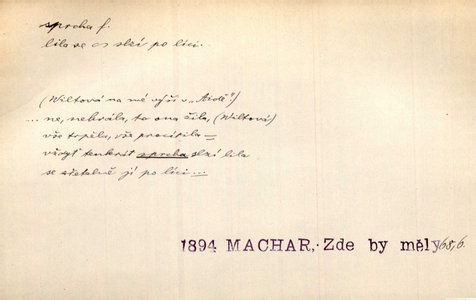 sprcha f.
lila se o slzí po líci..
(Wiltová na mé výši v „Aidě")
... ne, nehrála, to ona žila, (Wiltová)
vše trpěla, vše procítila =
vždyť tenkrát sprcha slzí lila
se zřetelně jí po líci...
1894 MACHAR, Zde by měly 68,6.